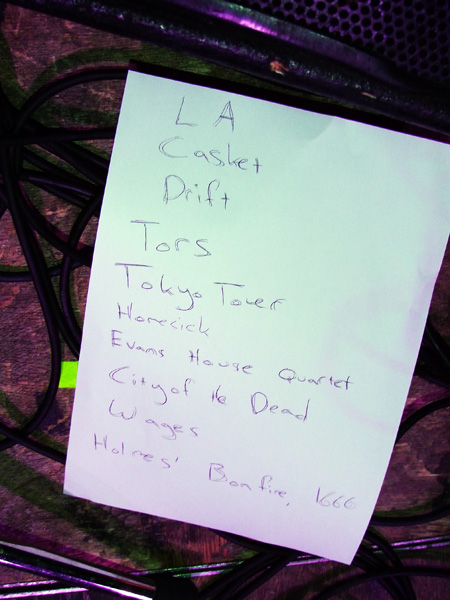 LA
Casket
Drift
Tors
Tokyo Tower
Homesick
Evans House Quartet
City of the Dead
Wages
Holmes' Bonfire, 1666